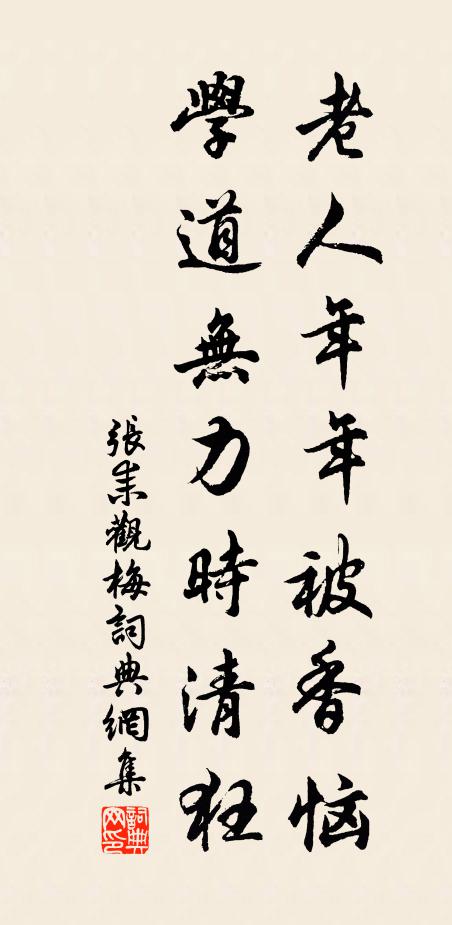 老人年年被香恼
學道無力時清狂
張耒觀梅詞典網集
詞典网印